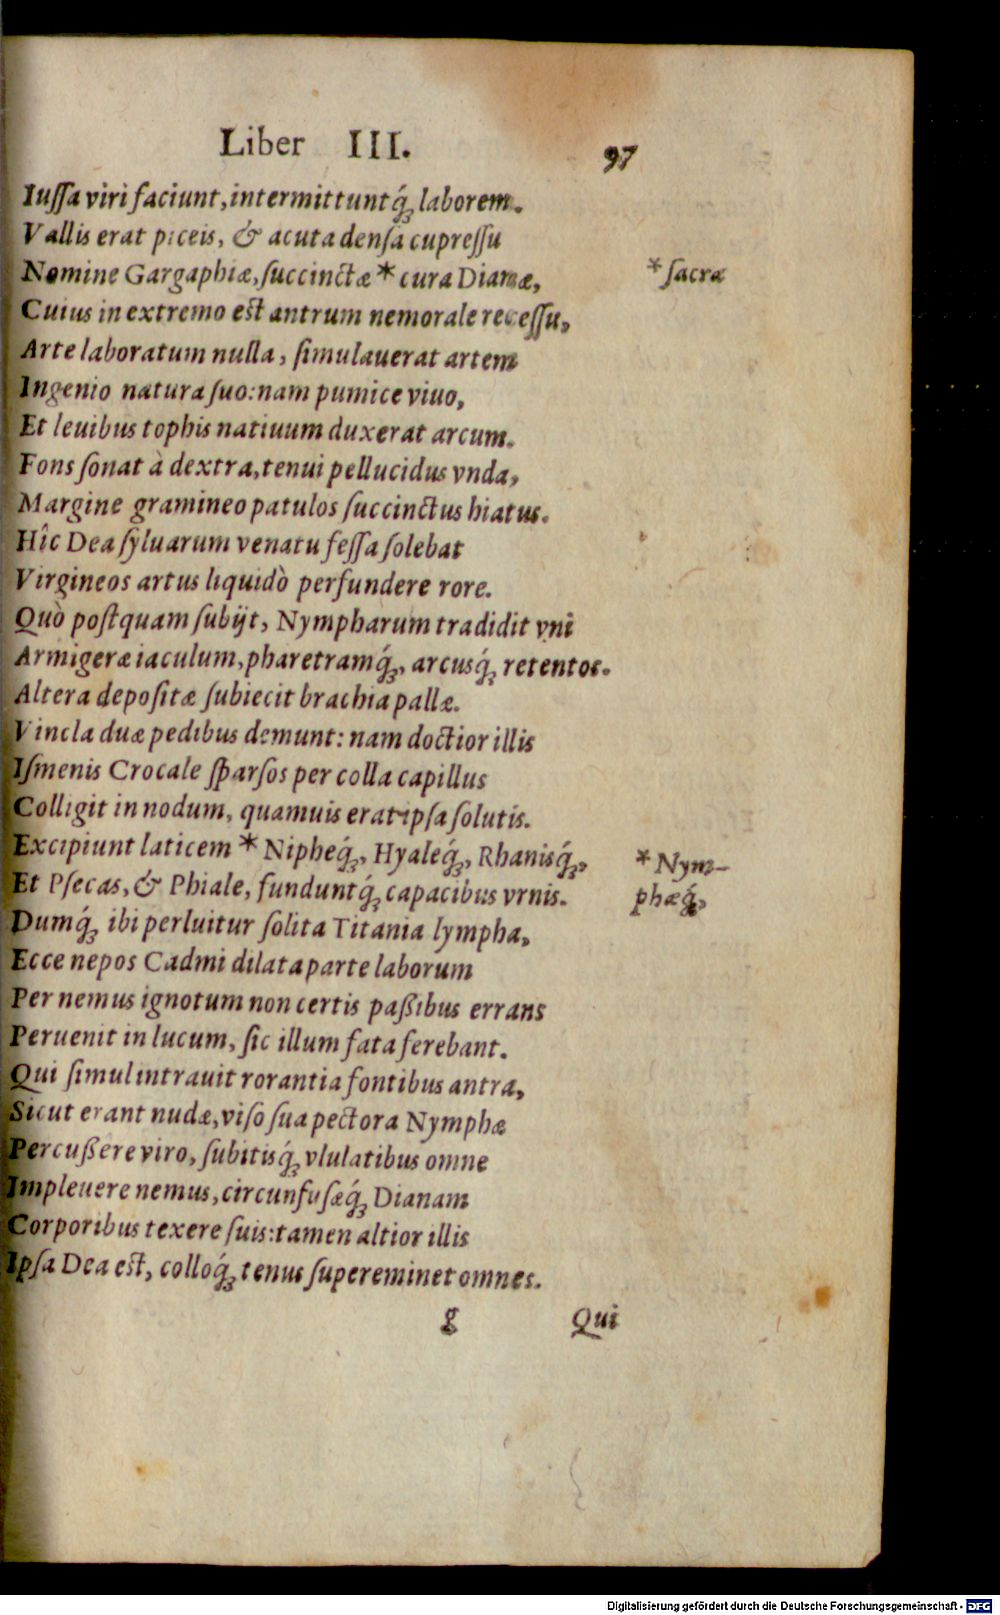 Liber III. 97
Iuſſa viri faciunt, intermittuntq́ꝫ laborem.
Vallis erat piceis, & acuta denſa cupreſſu
Nomine Gargaphiæ, ſuccinctæ * cura Dianæ,
* ſacræ
Cuius in extremo eſt antrum nemorale receſſu,
Arte laboratum nulla, ſimulauerat artem
Ingenio natura ſuo: nam pumice viuo,
Et leuibus tophis natiuum duxerat arcum.
Fons ſonat à dextra, tenui pellucidus vnda,
Margine gramineo patulos ſuccinctus hiatus.
Hîc Dea ſyluarum venatu feſſa ſolebat
Virgineos artus liquidò perfundere rore.
Quò poſtquam ſubijt, Nympharum tradidit vni
Armigeræ iaculum, pharetramq́ꝫ, arcusq́ꝫ retentos.
Altera depoſitæ ſubiecit brachia pallæ.
Vincla duæ pedibus demunt: nam doctior illis
Iſmenis Crocale ſparſos per colla capillus
Colligit in nodum, quamuis erat ipſa ſolutis.
Excipiunt laticem * Nipheq́ꝫ, Hyaleq́ꝫ, Rhanisq́ꝫ,
* Nym-
Et Pſecas, & Phiale, funduntq́ꝫ capacibus vrnis.
phæq́ꝫ,
Dumq́ꝫ ibi perluitur ſolita Titania lympha,
Ecce nepos Cadmi dilata parte laborum
Per nemus ignotum non certis paßibus errans
Peruenit in lucum, ſic illum fata ferebant.
Qui ſimul intrauit rorantia fontibus antra,
Sicut erant nudæ, viſo ſua pectora Nymphæ
Percußere viro, ſubitisq́ꝫ vlulatibus omne
Impleuere nemus, circunfuſæq́ꝫ Dianam
Corporibus texere ſuis: tamen altior illis
Ipſa Dea eſt, colloq́ꝫ tenus ſupereminet omnes.
g Qui
Digitalisierung gefördert durch die Deutsche Forschungsgemeinschaft - DFG